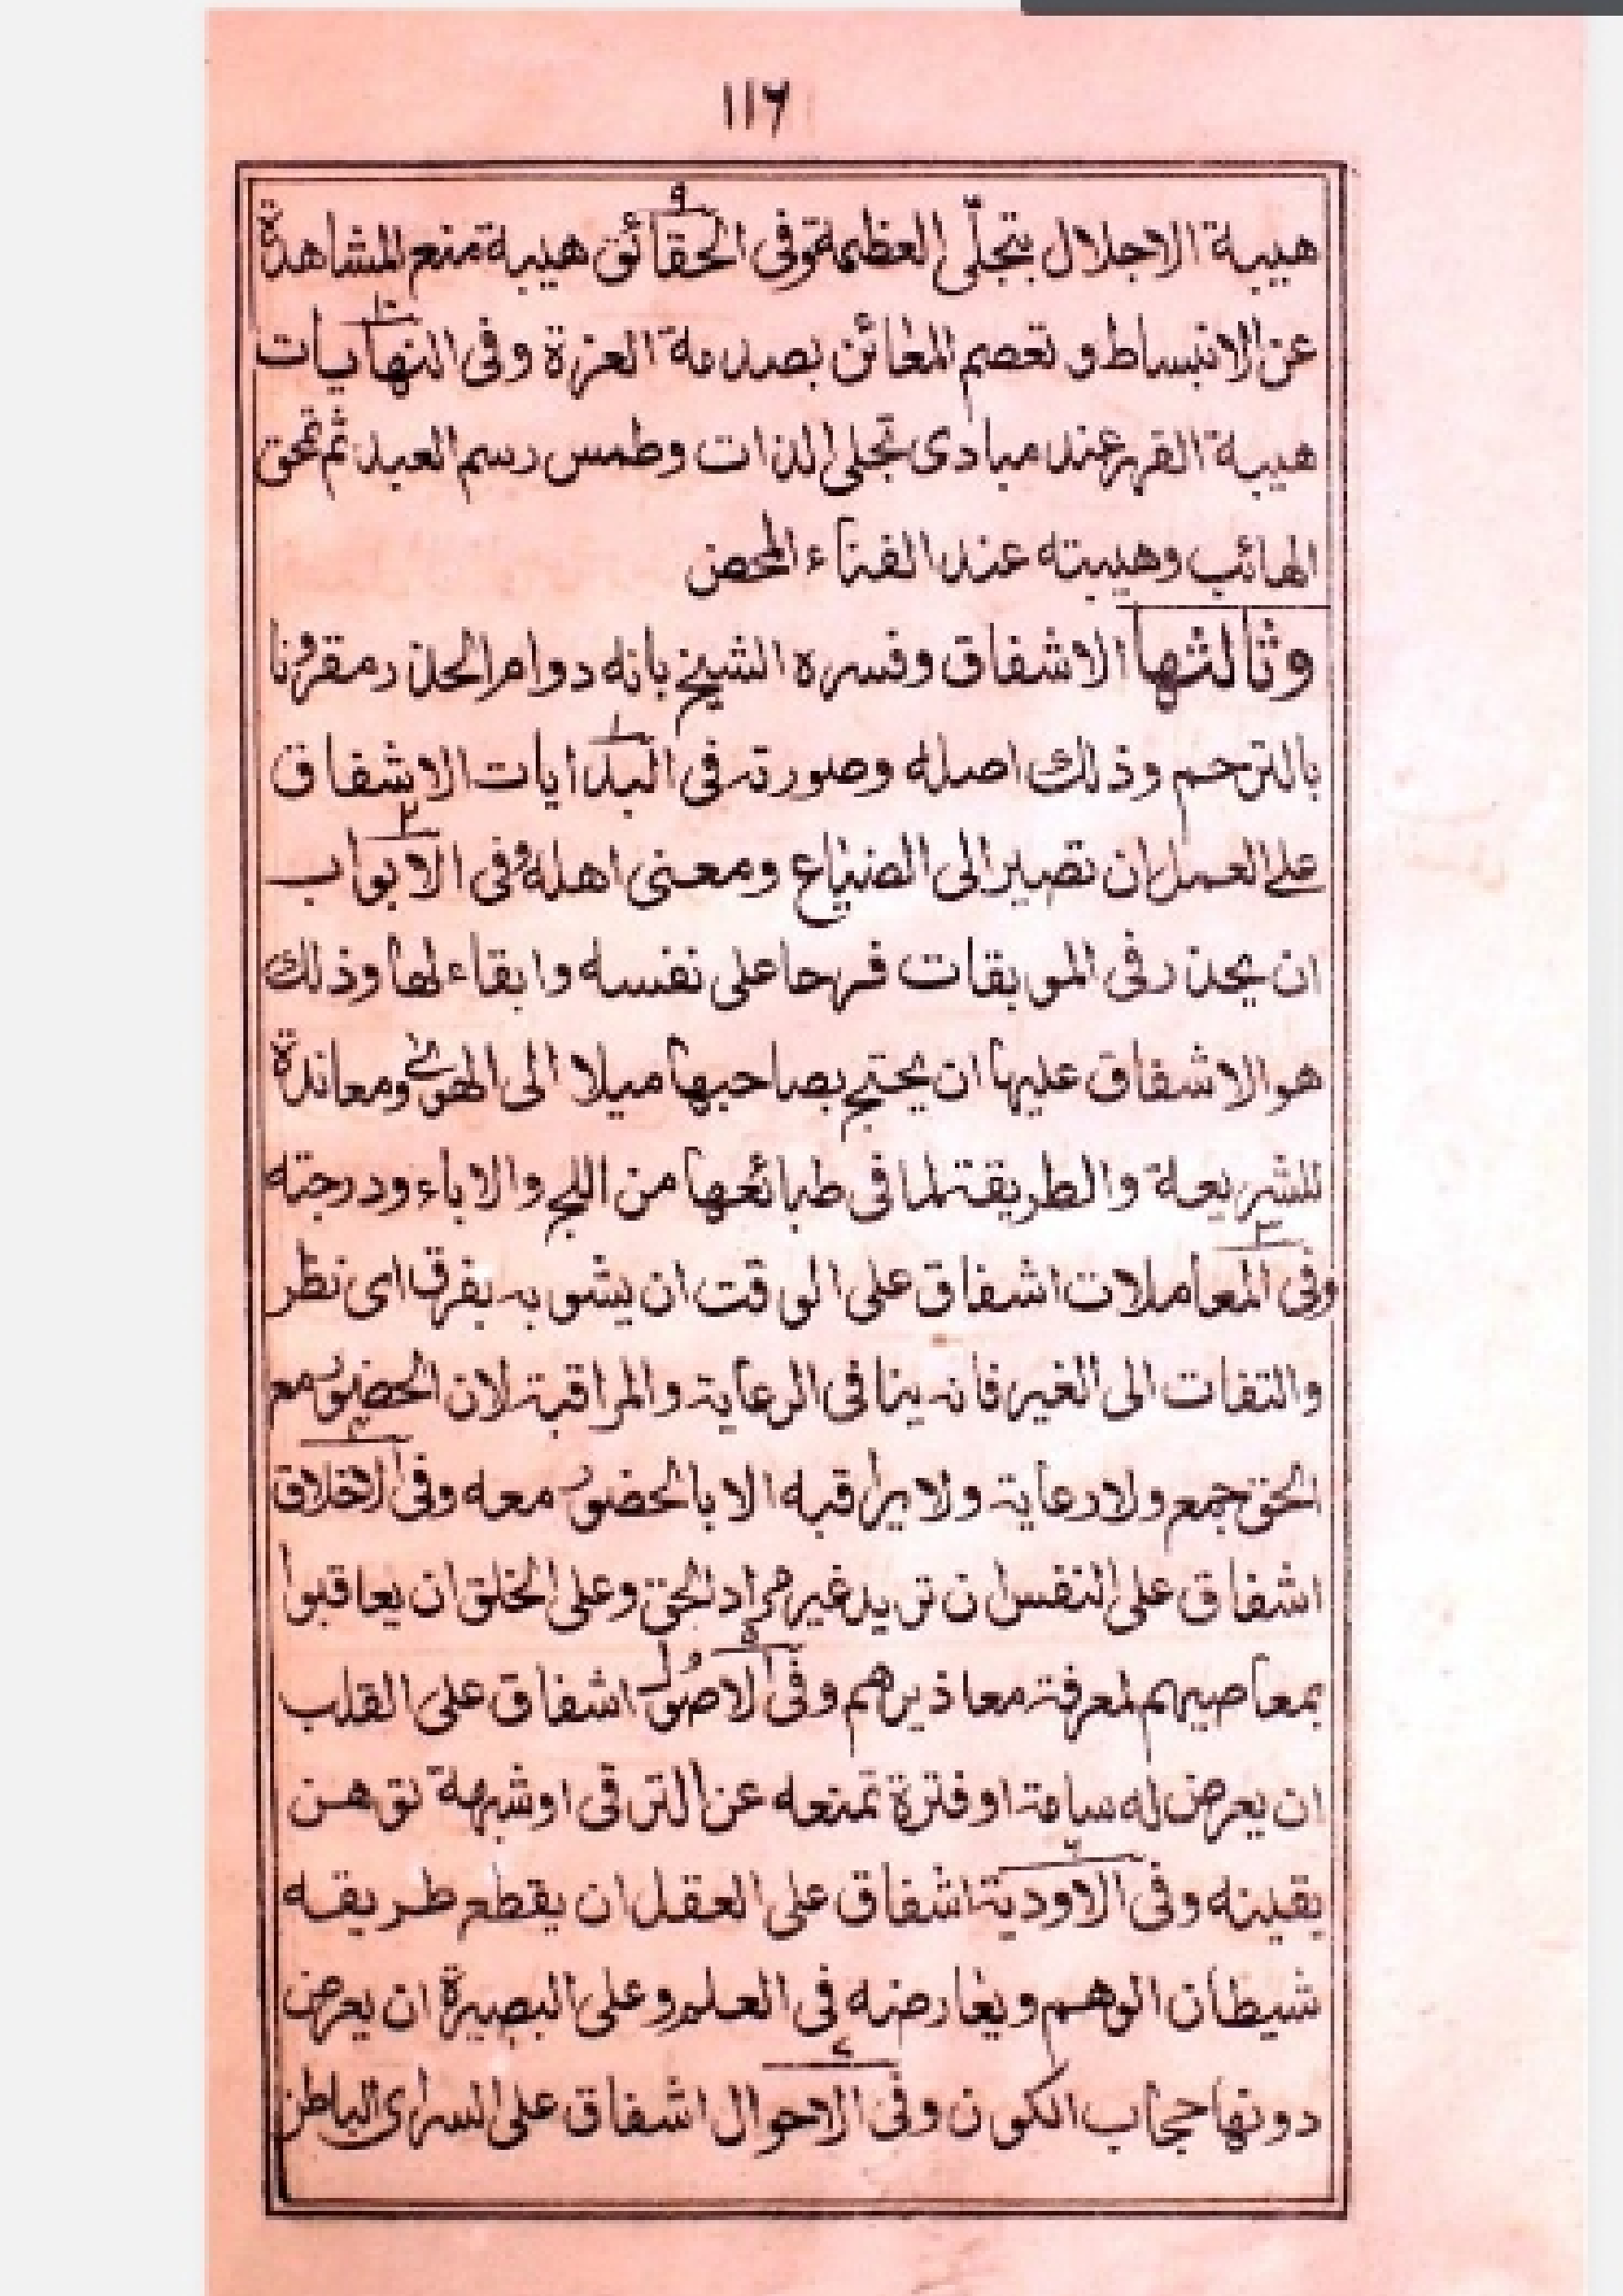 ١١٦
٩
هيبة الاجلال بتجلّى العظمة وفى الحقائق هيبة تمنع المشاهدة
١٠
عن الانبساط و تعصم المعائن بصدمة العزة وفى النهايات
هيبة القهر عند مبادى تجلى الذات وطمس رسم العبد ثم تمحق
الهائب وهيبته عند الفناء المحض
وثالثها الاشفاق وفسره الشيخ بانه دوام الحذر مقرونا
١
بالترحم وذلك اصله وصورته فى البدايات الاشفاق
٢
على العمل ان تصير الى الضياع ومعنى اهله وفى الابواب
ان يحذر فى الموبقات فرحا على نفسه وابقاء لها وذلك
هو الاشفاق عليها ان يجتمح بصاحبها ميلا الى الهوى ومعاندة
للشريعة والطريقة لما فى طبائعها من اللج والاباء ودرجته
٣
وفى المعاملات اشفاق على الوقت ان يشوبه بفرق اى نظر
والتفات الى الغير فانه ينافى الرعاية والمراقبة لان الحضور مع
٤
الحق جمع ولا رعاية ولا يراقبه الا بالحضور معه وفى الاخلاق
اشفاق على النفس ان تريد غير مراد الحق وعلى الخلق ان يعاقبوا
٥
بمعاصيهم لمعرفة معاذيرهم وفى الاصول اشفاق على القلب
ان يعرض له سامة او فترة تمنعه عن الترقى او شبهة توهن
٦
يقينه وفى الاودية اشفاق على العقل ان يقطع طريقه
شيطان الوهم ويعارضه فى العلم وعلى البصيرة ان يعرض
٧
دونها حجاب الكون وفى الاحوال اشفاق على السر اى الباطن